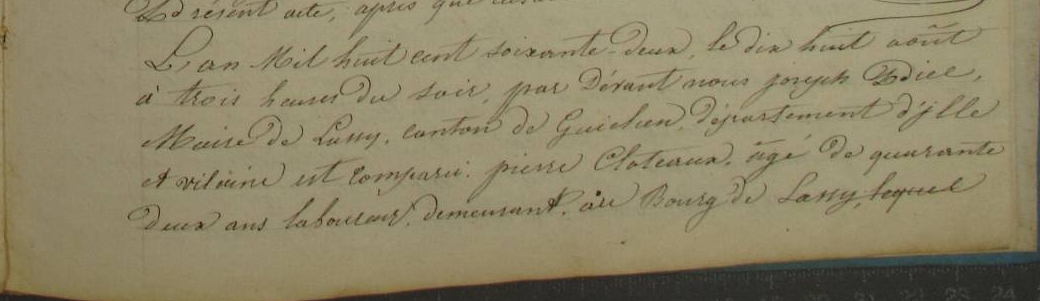 présent acte, après que
L'an Mil huit cent soixante-deux, le dix huit août
à trois heures du soir, par Dévant nous joseph Ediel,
Maire de Lassy, canton de Guichen, département d'jlle
et vilaine est comparu. pierre Cloteaux, âgé de quarante
deux ans laboureur, demeurant, au Bourg de Lassy, lequel